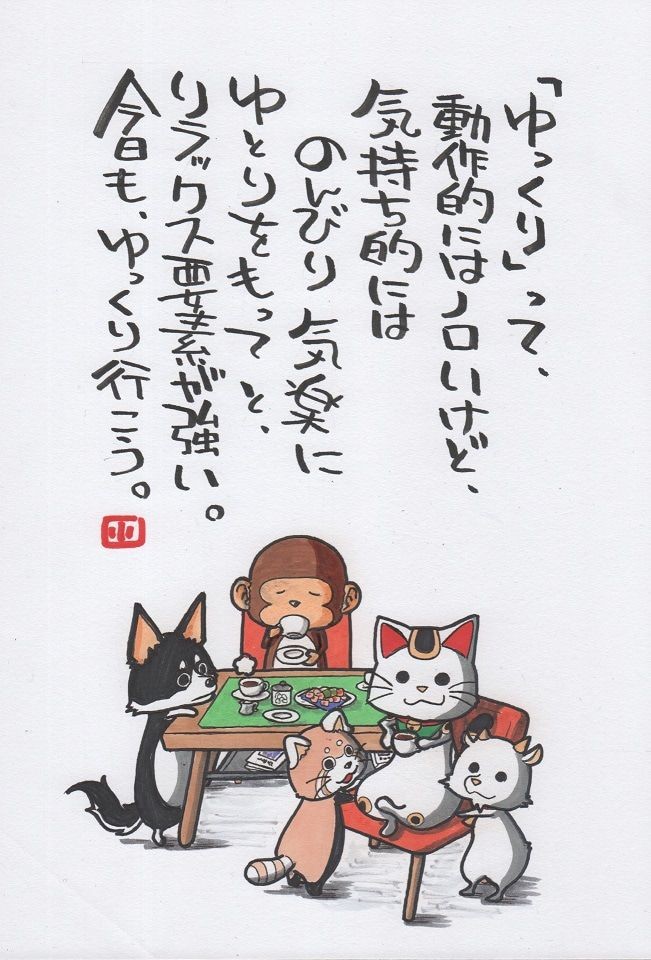 「ゆっくり」って、
動作的にはノロいけど、
気持ち的には
のんびり 気楽に
ゆとりをもってと、
リラックス要素が強い。
今日も、ゆっくり行こう。